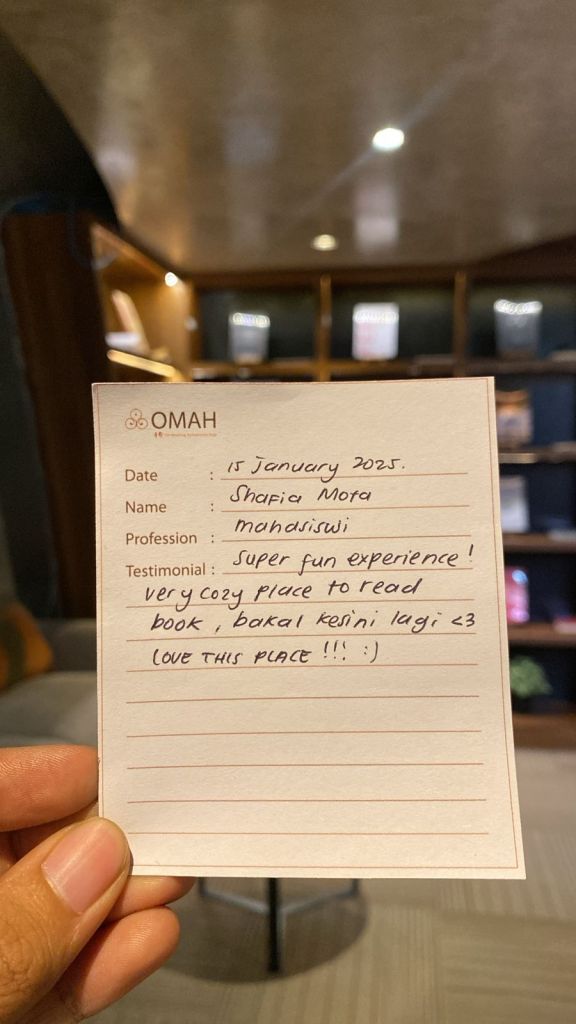 OMAH
Date : 15 January 2025.
Name : Shafia Mota
Profession : mahasiswi
Testimonial : super fun experience!
very cozy place to read
book, bakal kesini lagi <3
LOVE THIS PLACE !!! :)